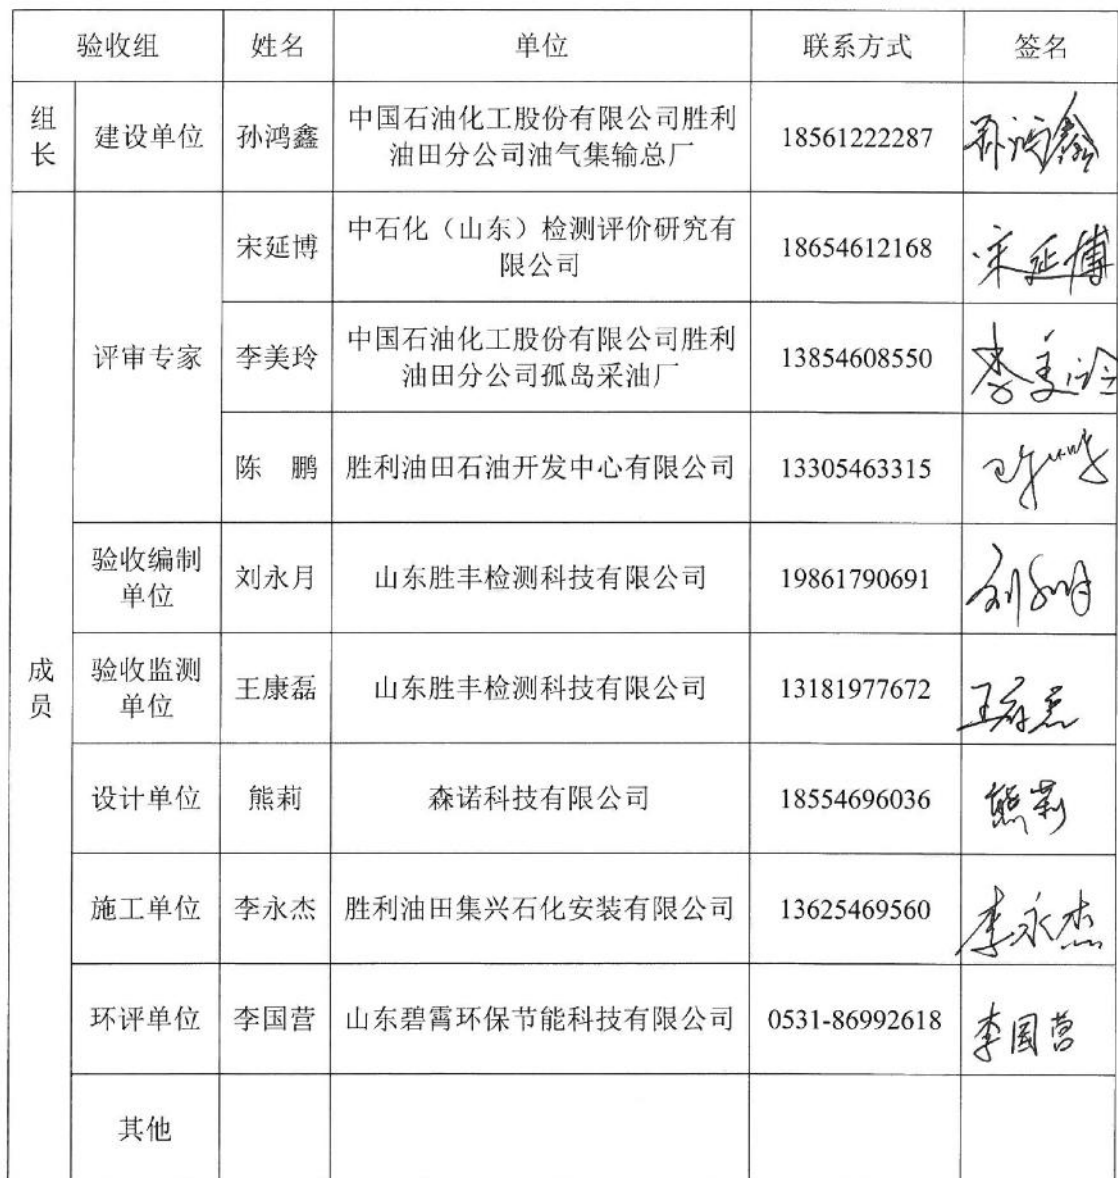 验收组 姓名 单位 联系方式 签名
组长 建设单位 孙鸿鑫 中国石油化工股份有限公司胜利油田分公司油气集输总厂 18561222287 孙鸿鑫
成员 评审专家 宋延博 中石化（山东）检测评价研究有限公司 18654612168 宋延博
李美玲 中国石油化工股份有限公司胜利油田分公司孤岛采油厂 13854608550 李美玲
陈 鹏 胜利油田石油开发中心有限公司 13305463315
验收编制单位 刘永月 山东胜丰检测科技有限公司 19861790691 刘永月
验收监测单位 王康磊 山东胜丰检测科技有限公司 13181977672 王康磊
设计单位 熊莉 森诺科技有限公司 18554696036 熊莉
施工单位 李永杰 胜利油田集兴石化安装有限公司 13625469560 李永杰
环评单位 李国营 山东碧霄环保节能科技有限公司 0531-86992618 李国营
其他